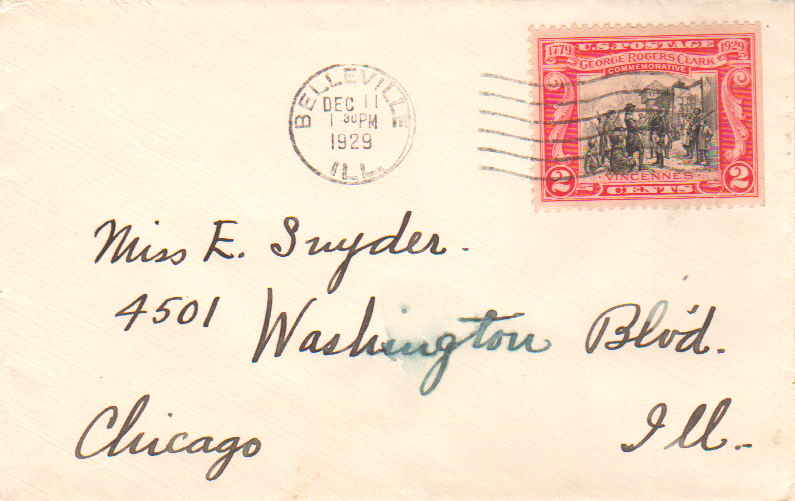 BELLEVILLE
DEC 11
1 30 PM
1929
ILL.
1779 U.S. POSTAGE 1929
GEORGE ROGERS CLARK
COMMEMORATIVE
VINCENNES
2 CENTS 2
Miss E. Snyder.
4501 Washington Blv'd.
Chicago Ill.